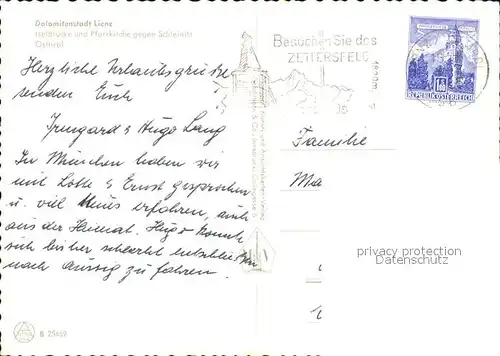 Dolomitenstadt Lienz
Iselbrücke und Pfarrkirche gegen Schleinitz
Osttirol
Besuchen Sie das
ZETTERSFELD
1820m
REPUBLIK ÖSTERREICH
Herzliche Urlaubsgrüße
senden Euch
Irmgard & Hugo Lang
In München haben wir
mit Lotte & Ernst gesprochen
u. viel Neues erfahren, auch
aus der Heimat. Hugo konnte
sich bisher schlecht entschließen
nach Aussig zu fahren.
Familie
Ma
privacy protection
Datenschutz
B 25659